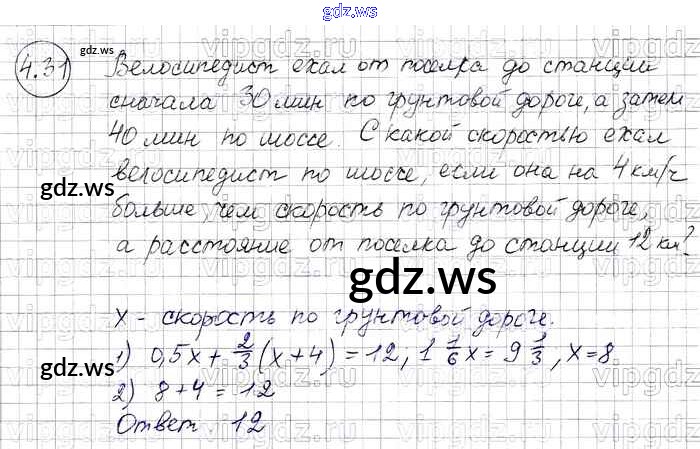 gdz.ws
4.31
Велосипедист ехал от поселка до станции
сначала 30 мин по грунтовой дороге, а затем
40 мин по шоссе. С какой скоростью ехал
велосипедист по шоссе, если она на 4 км/ч
больше, чем скорость по грунтовой дороге,
а расстояние от поселка до станции 12 км?
x - скорость по грунтовой дороге.
1) 0,5x + 2/3 (x+4) = 12, 1 1/6 x = 9 1/3, x=8
2) 8+4 = 12
Ответ. 12
gdz.ws
gdz.ws
gdz.ws
gdz.ws
gdz.ws
gdz.ws